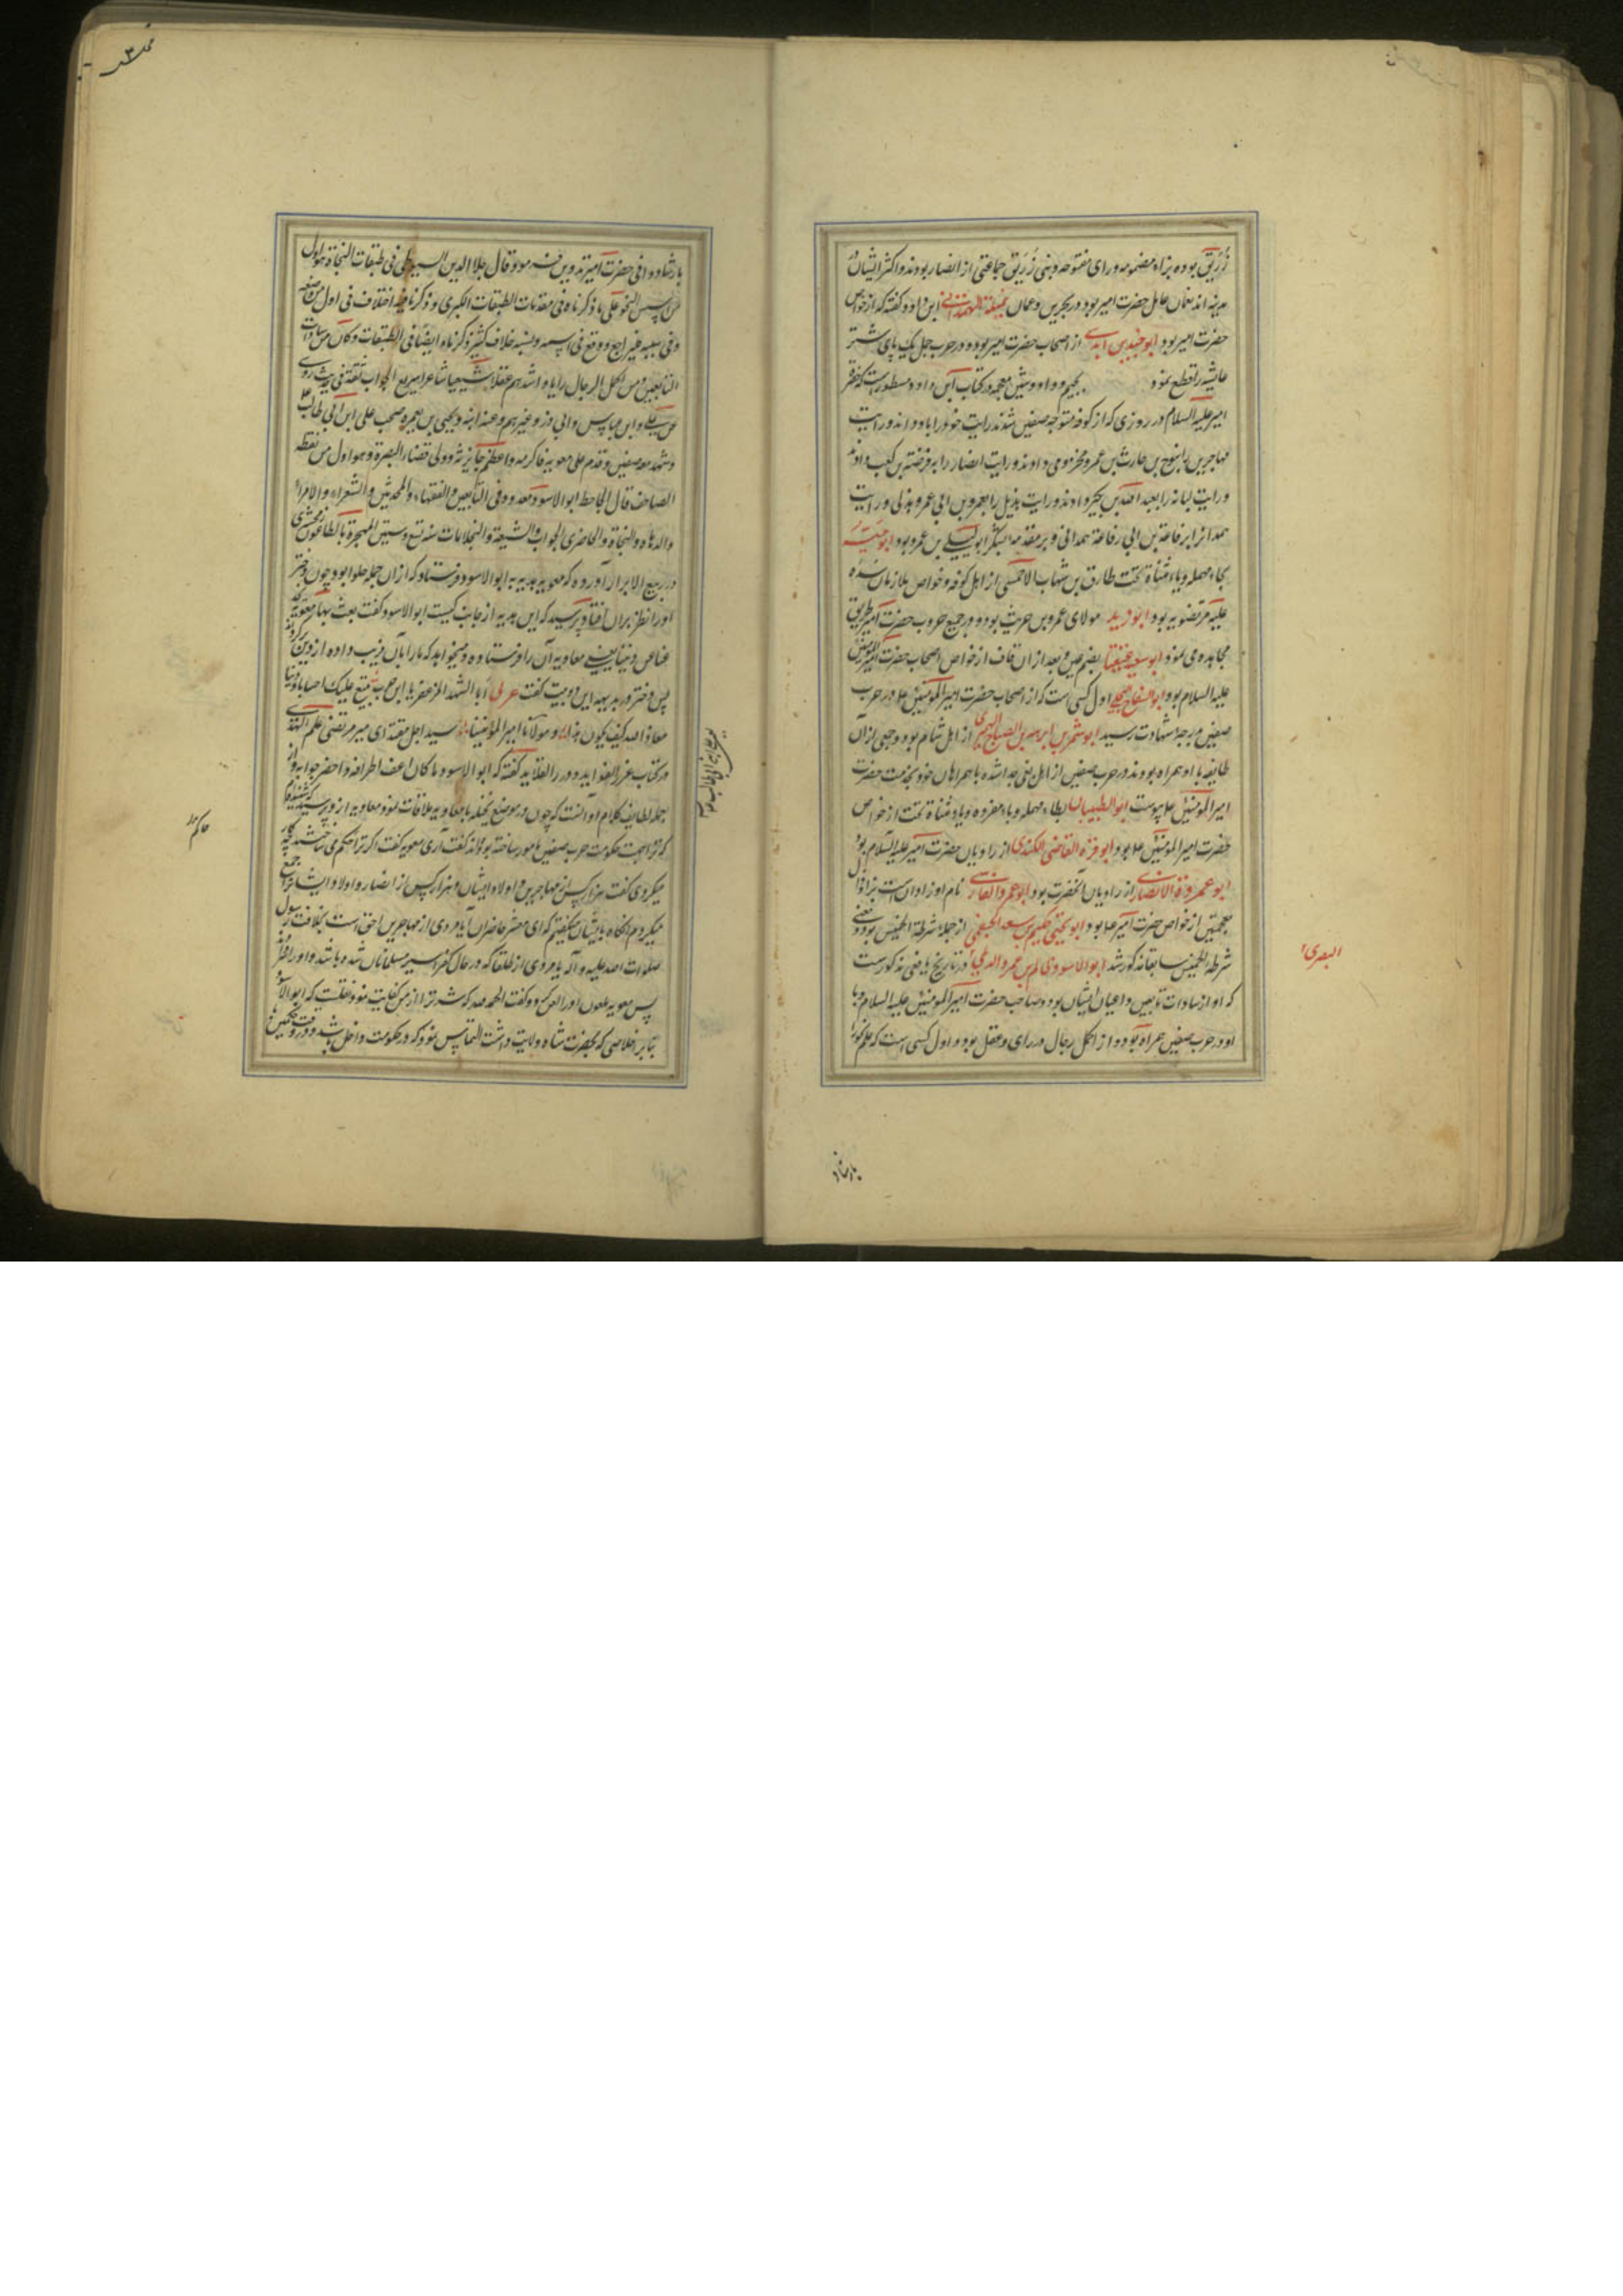 زُرَیق بوده بزاء مضمومه و رای مفتوحه و بنی زُرَیق جماعتی از انصار بودند و اکثر ایشان در
مدینه اند نعمان عامل حضرت امیر بود در بحرین و عمان ابن داود گفته که از خواص
حضرت امیر بود ابو جنید بن از اصحاب حضرت امیر بود و در حرب جمل یک پای شتر
عایشه را قطع نمود بجیم و واو و شین معجمه در کتاب ابن داود مسطورست که حضرت
امیر علیه السلام در روزی که از کوفه متوجه صفین شدند رایت خود را باو دادند و رایت
مهاجرین را بنوح بن حارث بن عمرو مخزومی دادند و رایت انصار را به قرظة بن کعب دادند
و رایت کنانه را بعبد الله بن بکیر دادند و رایت هذیل را بعمرو بن ابی عمرو هذلی و رایت
همدان را برفاعة بن ابی رفاعة همدانی و بر مقدمه لشکر ابو لیلی بن عمرو بود ابو حیّه
بحاء مهمله و یاء مثناة تحت طارق بن شهاب الاحمسی از اهل کوفه و خواص ملازمان سده
علیه مرتضویه بود ابو زید مولای عمرو بن حریث بود و در جمیع حروب حضرت امیر طریق
مجاهده می نمود ابو سعید عقیصا بفتح عین و بعد از ان قاف از خواص اصحاب حضرت امیر المؤمنین
علیه السلام بود ابو السفاح البجلی اول کسی است که از اصحاب حضرت امیر المؤمنین ع در حرب
صفین بدرجه شهادت رسید ابو شمر بن ابرهه بن الصباح الحمیری از اهل شام بود و جمعی از آن
طایفه با او همراه بودند در حرب صفین از اهل بغی جدا شده با همراهان خود بخدمت حضرت
امیر المومنین ع پیوست ابو الطبیبان بطاء مهمله و باء مفرده و یاء مثناة تحت از خواص
حضرت امیر المومنین ع بود ابو قرّه القاضی الکندی از راویان حضرت امیر علیه السلام بود
ابو عمروة الانصاری از راویان آنحضرت بود ابو عمرو الفارسی نام او زاذان است بزا و ذال
معجمتین از خواص حضرت امیر ع بود ابو یحیی حکیم بن سعد الحنفی از جمله شرطة الخمیس بود و معنی
شرطة الخمیس سابقا مذکور شد ابو الاسود ظالم بن عمرو الدئلی در تاریخ یافعی مذکورست
که او از سادات تابعین و اعیان ایشان بود و صاحب حضرت امیر المومنین علیه السلام و با
او در حرب صفین همراه بود و از اکمل رجال در رای و عقل بود و اول کسی است که علم نحو را
البصری
بارشاد
بارشاد وافی حضرت امیر تدوین فرمود و قال جلال الدین السیوطی فی طبقات النحاة هو اول
من اسس النحو علی ما ذکرناه فی مقدمات الطبقات الکبری و ذکرنا فیه اختلاف فی اول من وضعه
و فی سببه فلیراجع و وقع فی اسمه و نسبه خلاف کثیر ذکرناه ایضا فی الطبقات و کان من سادات
التابعین و من اکمل الرجال رایا و اشدهم عقلا شیعیا شاعرا سریع الجواب ثقة فی حدیثه روی
عن علی و ابن عباس و ابی ذر و غیرهم و عنه ابنه و یحیی بن یعمر و صحب علی ابن ابی طالب ع
و شهد معه صفین و قدم علی معویه فاکرمه و اعظم جایزته و ولی قضاء البصرة و هو اول من نقط
المصاحف قال الجاحظ ابو الاسود معدود فی التابعین و الفقهاء و المحدثین و الشعراء و الامراء
و الدهاة و النحاة و الحاضری الجواب و الشیعة و البخلا مات سنه تسع و ستین للهجرة بالطاعون زمخشری
در ربیع الابرار آورده که معویه هدیه به ابو الاسود فرستاد که از ان جمله حلوا بود چون دختر
او را نظر بران افتاد پرسید که این هدیه از جانب کیست ابو الاسود گفت بعث بها معویه
عنا عن دیننا یعنی معاویه آن را فرستاده و میخواهد که ما را بآن فریب داده از دین
پس دختر در بدیهه این دو بیت گفت عربی أبا الشهد المزعفر یا ابن حرب نبیع علیک احسابا و دینا
معاذ الله کیف یکون هذا و مولانا امیر المؤمنینا سید اجل مقتدای میر مرتضی علم الهدی
در کتاب غرر الفواید و درر القلاید گفته که ابو الاسود
جمله لطایف کلام او آنست که چون در موضع نخیله با معاویه ملاقات نمود معاویه از و پرسید
که ترا بجهت حکومت حرب صفین مامور ساخته بودند گفت آری معویه گفت اگر ترا حکم می ساختند چه کار
میکردی گفت هزار کس از مهاجرین و اولاد ایشان و هزار کس از انصار و اولاد ایشان را جمع
میکردم آنگاه بایشان میگفتم که ای معشر حاضران آیا مردی از مهاجرین احق است بخلافت رسول
صلوات الله علیه و آله یا مردی از طلقا که در حال کفر اسیر مسلمانان شده باشد
پس معویه ملعون او را لعن کرد و گفت الحمد لله که شر ترا از من کفایت نمود نقلست که ابو الاسود
بنابر اخلاصی که بحضرت شاه ولایت داشت التماس نمود که در حکومت داخل باشد
حاکم